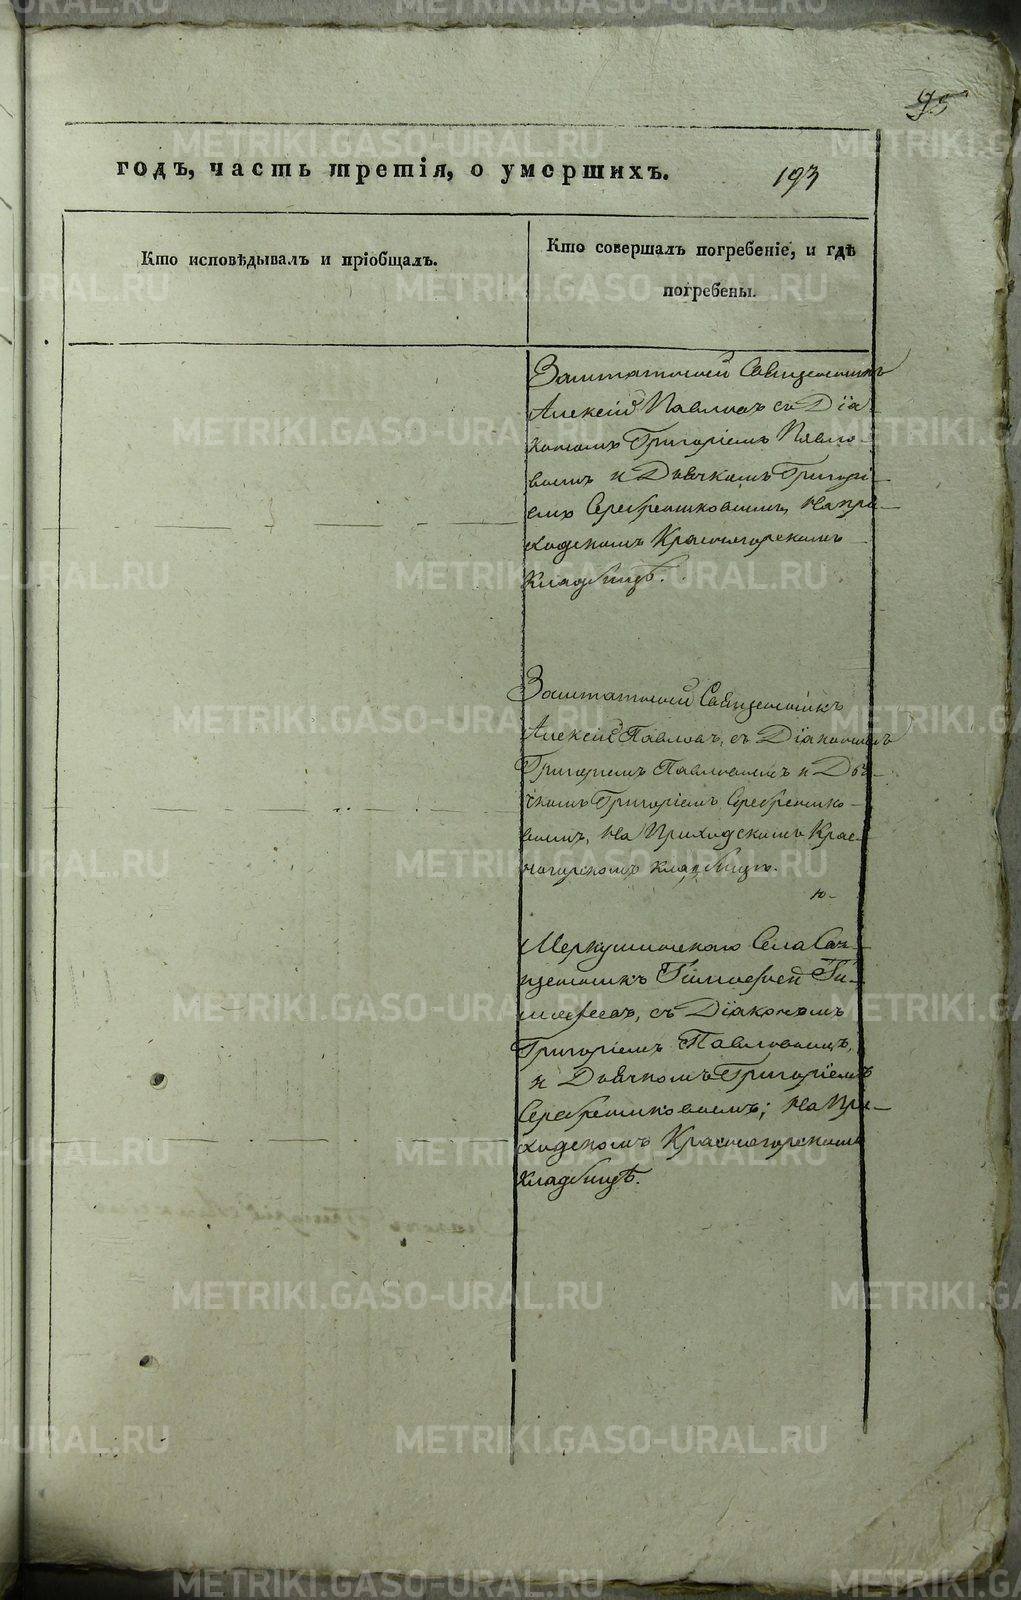 95
годъ, часть третія, о умершихъ.
193
Кто исповѣдывалъ и пріобщалъ.
Кто совершалъ погребеніе, и гдѣ
погребены.
Заштатный Священникъ
Алексій Павловъ съ Діа
кономъ Григоріемъ Павло-
вымъ и Дьячкомъ Григорі-
емъ Серебренниковымъ, на при-
ходскомъ Красногорскомъ
Кладбищѣ.
Заштатный Священникъ
Алексій Павловъ, съ Діакономъ
Григоріемъ Павловымъ и Дья-
чкомъ Григоріемъ Серебренико-
вымъ, на Приходскомъ Крас-
ногорскомъ кладбищѣ.
Меркушинскаго Села Свя-
щенникъ Тимофей Ти-
мофеевъ, съ Діакономъ
Григоріемъ Павловымъ,
и Дьячкомъ Григоріемъ
Серебрениковымъ; на При-
ходскомъ Красногорскомъ
кладбищѣ.
METRIKI.GASO-URAL.RU